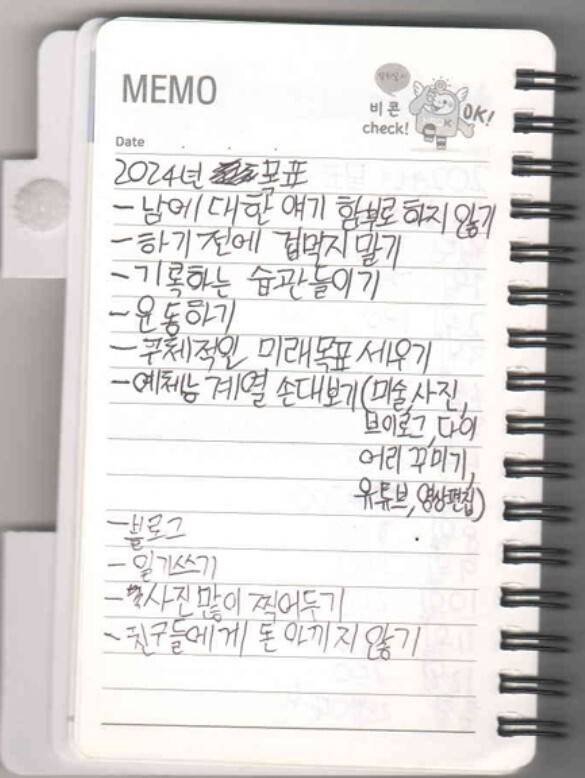 MEMO
비콘
check!
OK!
Date
2024년 목표
- 남에 대한 얘기 함부로 하지 않기
- 하기 전에 겁먹지 말기
- 기록하는 습관들이기
- 운동하기
- 구체적인 미래목표 세우기
- 예체능 계열 손대보기(미술, 사진,
브이로그, 다이
어리 꾸미기,
유튜브, 영상편집)
- 블로그
- 일기쓰기
- 사진 많이 찍어두기
- 친구들에게 돈 아끼지 않기